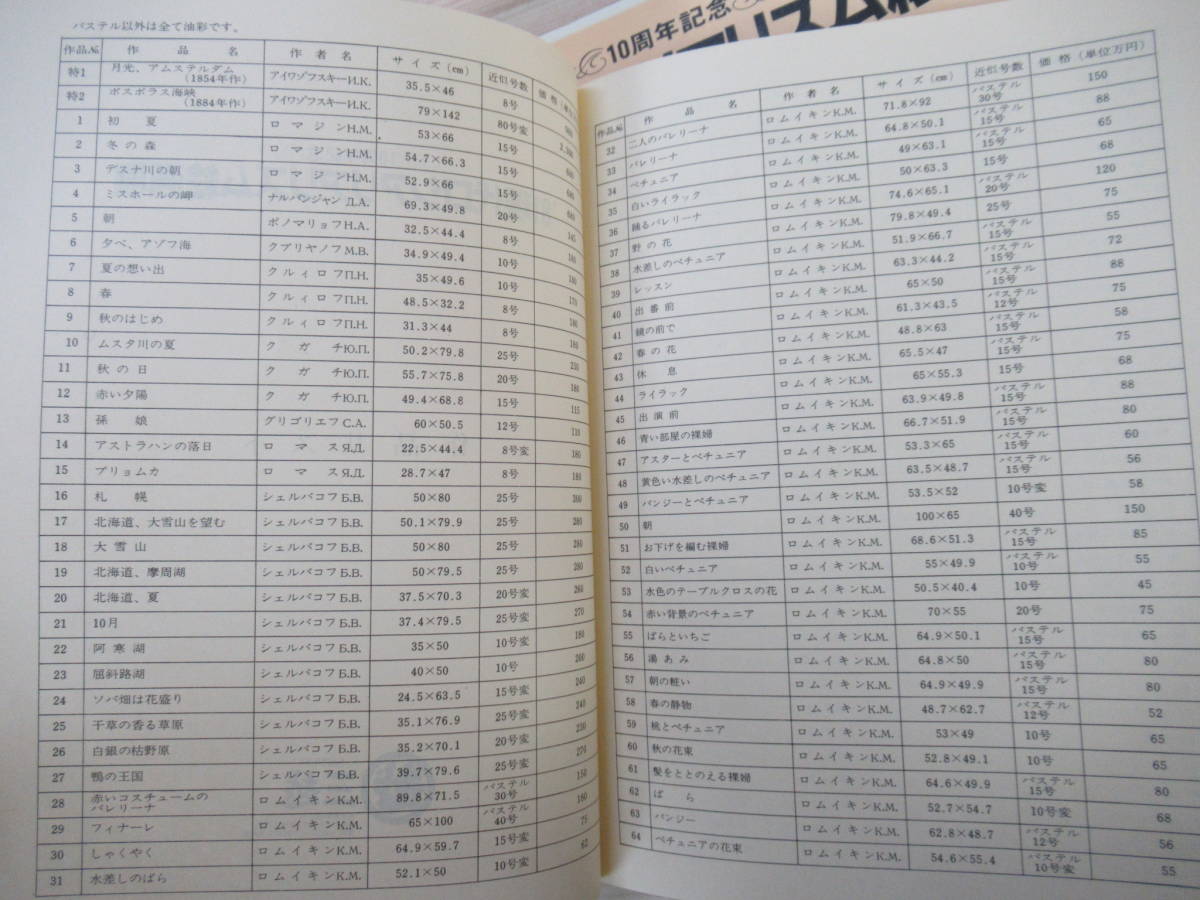 10周年記念
パステル以外は全て油彩です。
作品№ 作品名 作者名 サイズ(cm) 近似号数
特1 月光、アムステルダム (1854年作) アイワゾフスキーИ.К. 35.5×46 8号
特2 ボスポラス海峡 (1884年作) アイワゾフスキーИ.К. 79×142 80号変
1 初夏 ロマジンН.М. 53×66 15号
2 冬の森 ロマジンН.М. 54.7×66.3 15号
3 デスナ川の朝 ロマジンН.М. 52.9×66 15号
4 ミスホールの岬 ナルバンジャンД.А. 69.3×49.8 20号 145
5 朝 ポノマリョフН.А. 32.5×44.4 8号 160
6 夕べ、アゾフ海 クプリヤノフМ.В. 34.9×49.4 10号 180
7 夏の想い出 クルィロフП.Н. 35×49.6 10号 170
8 春 クルィロフП.Н. 48.5×32.2 8号 180
9 秋のはじめ クルィロフП.Н. 31.3×44 8号 180
10 ムスタ川の夏 クガチЮ.П. 50.2×79.8 25号 230
11 秋の日 クガチЮ.П. 55.7×75.8 20号 180
12 赤い夕陽 クガチЮ.П. 49.4×68.8 15号 115
13 孫娘 グリゴリエフС.А. 60×50.5 12号 110
14 アストラハンの落日 ロマスЯ.Д. 22.5×44.4 8号変 180
15 プリョムカ ロマスЯ.Д. 28.7×47 8号 180
16 札幌 シェルバコフБ.В. 50×80 25号 260
17 北海道、大雪山を望む シェルバコフБ.В. 50.1×79.9 25号 280
18 大雪山 シェルバコフБ.В. 50×80 25号 280
19 北海道、摩周湖 シェルバコフБ.В. 50×79.5 25号 280
20 北海道、夏 シェルバコフБ.В. 37.5×70.3 20号変 260
21 10月 シェルバコフБ.В. 37.4×79.5 25号変 270
22 阿寒湖 シェルバコフБ.В. 35×50 10号変 180
23 屈斜路湖 シェルバコフБ.В. 40×50 10号 200
24 ソバ畑は花盛り シェルバコフБ.В. 24.5×63.5 15号変 240
25 干草の香る草原 シェルバコフБ.В. 35.1×76.9 25号変 240
26 白銀の枯野原 シェルバコフБ.В. 35.2×70.1 20号変 230
27 鴨の王国 シェルバコフБ.В. 39.7×79.6 25号変 270
28 赤いコスチュームのバレリーナ ロムイキンК.М. 89.8×71.5 パステル30号 150
29 フィナーレ ロムイキンК.М. 65×100 パステル40号 180
30 しゃくやく ロムイキンК.М. 64.9×59.7 15号変 75
31 水差しのばら ロムイキンК.М. 52.1×50 10号変 62
作品№ 作品名 作者名 サイズ(cm) 近似号数 価格(単位万円)
32 二人のバレリーナ ロムイキンК.М. 71.8×92 パステル30号 150
33 バレリーナ ロムイキンК.М. 64.8×50.1 パステル15号 88
34 ペチュニア ロムイキンК.М. 49×63.1 パステル15号 65
35 白いライラック ロムイキンК.М. 50×63.3 15号 68
36 踊るバレリーナ ロムイキンК.М. 74.6×65.1 パステル20号 120
37 野の花 ロムイキンК.М. 79.8×49.4 25号 75
38 水差しのペチュニア ロムイキンК.М. 51.9×66.7 パステル15号 55
39 レッスン ロムイキンК.М. 63.3×44.2 パステル15号 72
40 出番前 ロムイキンК.М. 65×50 パステル15号 88
41 鏡の前で ロムイキンК.М. 61.3×43.5 パステル12号 75
42 春の花 ロムイキンК.М. 48.8×63 パステル15号 58
43 休息 ロムイキンК.М. 65.5×47 パステル15号 75
44 ライラック ロムイキンК.М. 65×55.3 15号 68
45 出演前 ロムイキンК.М. 63.9×49.8 パステル15号 88
46 青い部屋の裸婦 ロムイキンК.М. 66.7×51.9 パステル15号 80
47 アスターとペチュニア ロムイキンК.М. 53.3×65 パステル15号 60
48 黄色い水差しのペチュニア ロムイキンК.М. 63.5×48.7 パステル15号 56
49 パンジーとペチュニア ロムイキンК.М. 53.5×52 10号変 58
50 朝 ロムイキンК.М. 100×65 40号 150
51 お下げを編む裸婦 ロムイキンК.М. 68.6×51.3 パステル15号 85
52 白いペチュニア ロムイキンК.М. 55×49.9 パステル10号 55
53 水色のテーブルクロスの花 ロムイキンК.М. 50.5×40.4 10号 45
54 赤い背景のペチュニア ロムイキンК.М. 70×55 20号 75
55 ばらといちご ロムイキンК.М. 64.9×50.1 パステル15号 65
56 湯あみ ロムイキンК.М. 64.8×50 パステル15号 80
57 朝の粧い ロムイキンК.М. 64.9×49.9 パステル15号 80
58 春の静物 ロムイキンК.М. 48.7×62.7 パステル12号 52
59 桃とペチュニア ロムイキンК.М. 53×49 10号 65
60 秋の花束 ロムイキンК.М. 52.8×49.1 10号 65
61 髪をととのえる裸婦 ロムイキンК.М. 64.6×49.9 パステル15号 80
62 ばら ロムイキンК.М. 52.7×54.7 10号変 68
63 パンジー ロムイキンК.М. 62.8×48.7 パステル12号 56
64 ペチュニアの花束 ロムイキンК.М. 54.6×55.4 パステル10号変 55